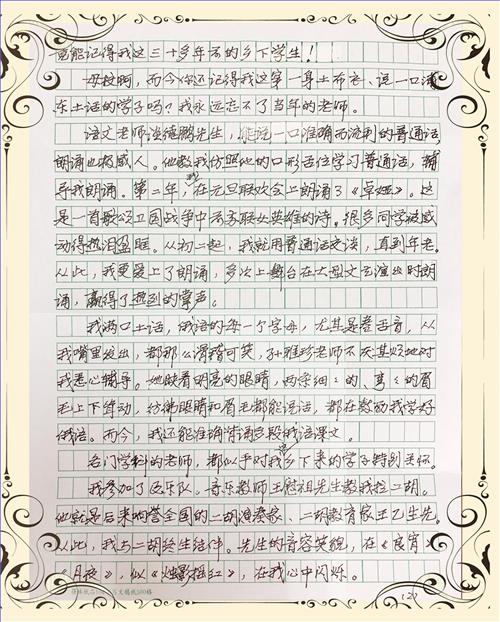 能记得我这三十多年前的乡下学生！
母校啊，而今你还记得我这第一身土布衣、说一口浦
东土话的学子吗？我永远忘不了当年的老师。
语文老师洪德鹏先生，能说一口准确而流利的普通话，
朗诵也极感人。他教我仿照他的口形舌位学习普通话，辅
导我朗诵。第二年，我在元旦联欢会上朗诵了《卓娅》。这
是一首歌颂卫国战争中苏联女英雄的诗。很多同学被感
动得热泪盈眶。从初二起，我就用普通话交谈，直到年老。
从此，我更爱上了朗诵，多次上舞台在大型文艺演出时朗
诵，赢得了热烈的掌声。
我满口土话，俄语的每一个字母，尤其是卷舌音，从
我嘴里发出，都那么滑稽可笑，孙雅珍老师不厌其烦地对
我悉心辅导。她眨着明亮的眼睛，两条细细的、弯弯的眉
毛上下耸动，仿佛眼睛和眉毛都能说话，都在鼓励我学好
俄语。而今，我还能准确背诵多段俄语课文。
各门学科的老师，都似乎对我乡下来的学子特别关怀。
我参加了民乐队，音乐教师王慰祖先生教我拉二胡。
他就是后来响誉全国的二胡演奏家、二胡教育家王乙先生。
从此，我与二胡终生结伴。先生的音容笑貌，在《良宵》
《月夜》，似《烛影摇红》，在我心中闪烁。
（2）